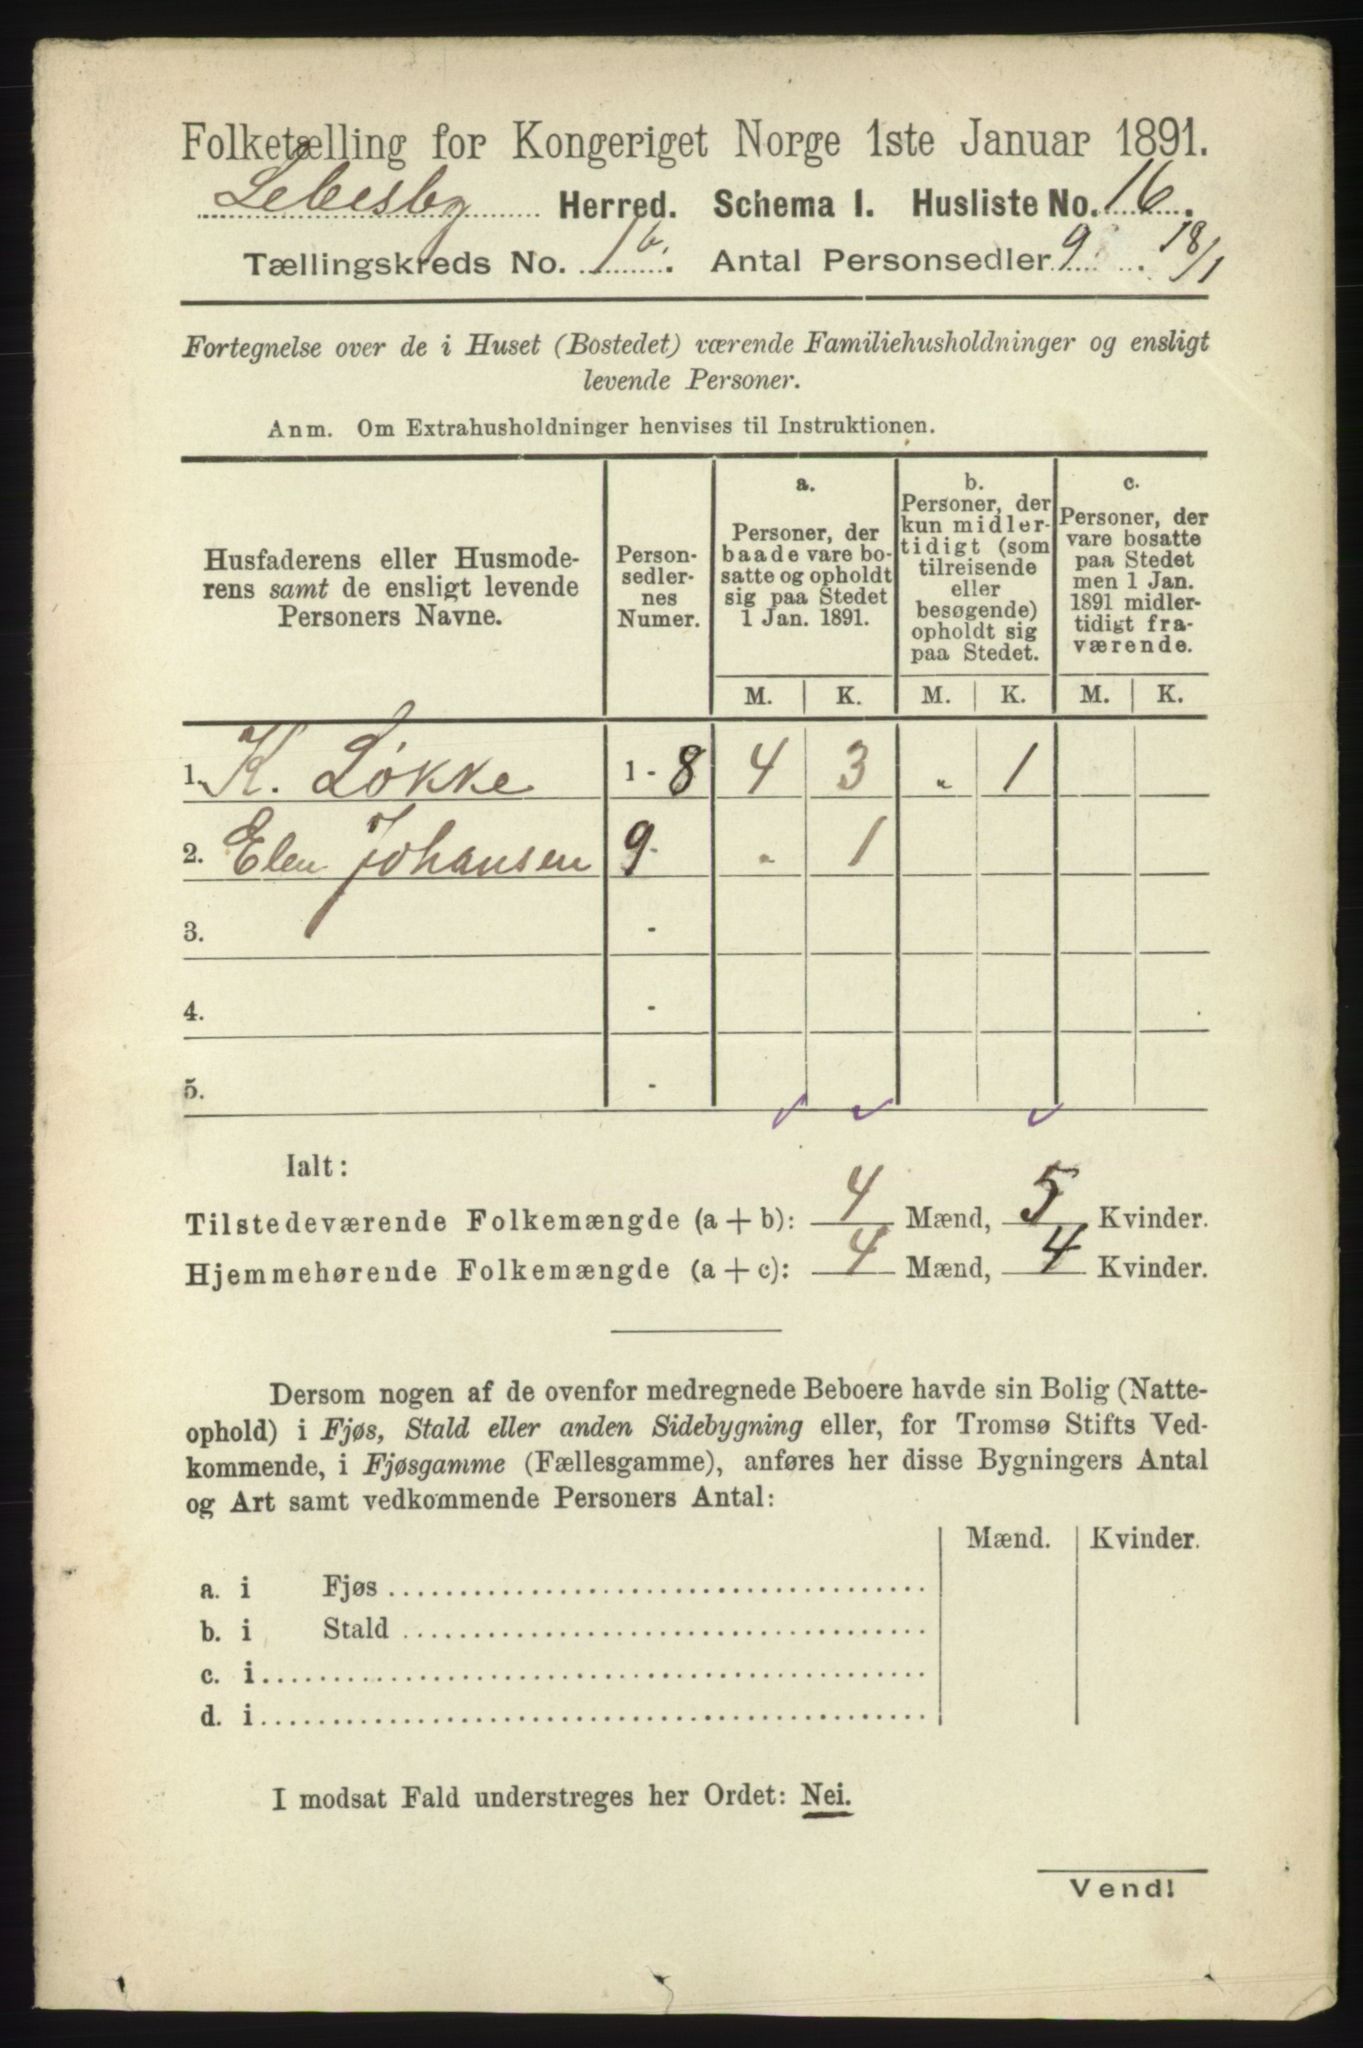 Folketælling for Kongeriget Norge 1ste Januar 1891.
Lebesby Herred. Schema I. Husliste No. 16.
Tællingskreds No. 1b. Antal Personsedler 9. 18/1
Fortegnelse over de i Huset (Bostedet) værende Familiehusholdninger og ensligt
levende Personer.
Anm. Om Extrahusholdninger henvises til Instruktionen.
Husfaderens eller Husmode-
rens samt de ensligt levende
Personers Navne.
Person-
sedler-
nes
Numer.
a.
Personer, der
baade vare bo-
satte og opholdt
sig paa Stedet
1 Jan. 1891.
b.
Personer, der
kun midler-
tidigt (som
tilreisende
eller
besøgende)
opholdt sig
paa Stedet.
c.
Personer, der
vare bosatte
paa Stedet
men 1 Jan.
1891 midler-
tidigt fra-
værende.
M. K. M. K. M. K.
1. K. Løkke 1 - 8 4 3 „ 1
2. Elen Johansen 9 - „ 1
3. -
4. -
5. -
Ialt:
Tilstedeværende Folkemængde (a + b): 4 Mænd, 5 Kvinder.
Hjemmehørende Folkemængde (a + c): 4 Mænd, 4 Kvinder.
Dersom nogen af de ovenfor medregnede Beboere havde sin Bolig (Natte-
ophold) i Fjøs, Stald eller anden Sidebygning eller, for Tromsø Stifts Ved-
kommende, i Fjøsgamme (Fællesgamme), anføres her disse Bygningers Antal
og Art samt vedkommende Personers Antal:
Mænd. Kvinder.
a. i Fjøs
b. i Stald
c. i
d. i
I modsat Fald understreges her Ordet: Nei.
Vend!